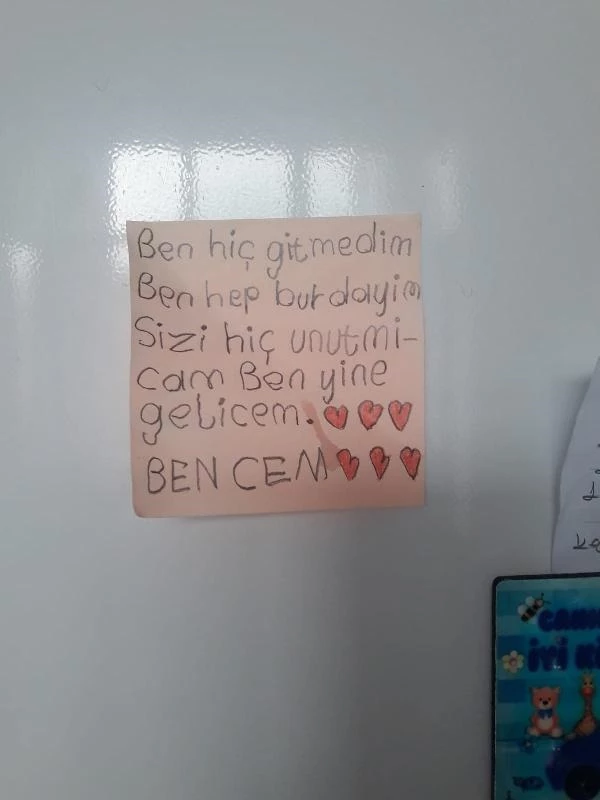 Ben hiç gitmedim
Ben hep burdayim
Sizi hiç unutmi-
cam Ben yine
gelicem.
BEN CEM
iyi ki